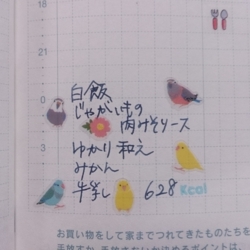 18
白飯
じゃがいもの
肉みそソース
0
ゆかり和え
みかん
牛乳 628 Kcal
6
お買い物をして家までつれてきたものたちを